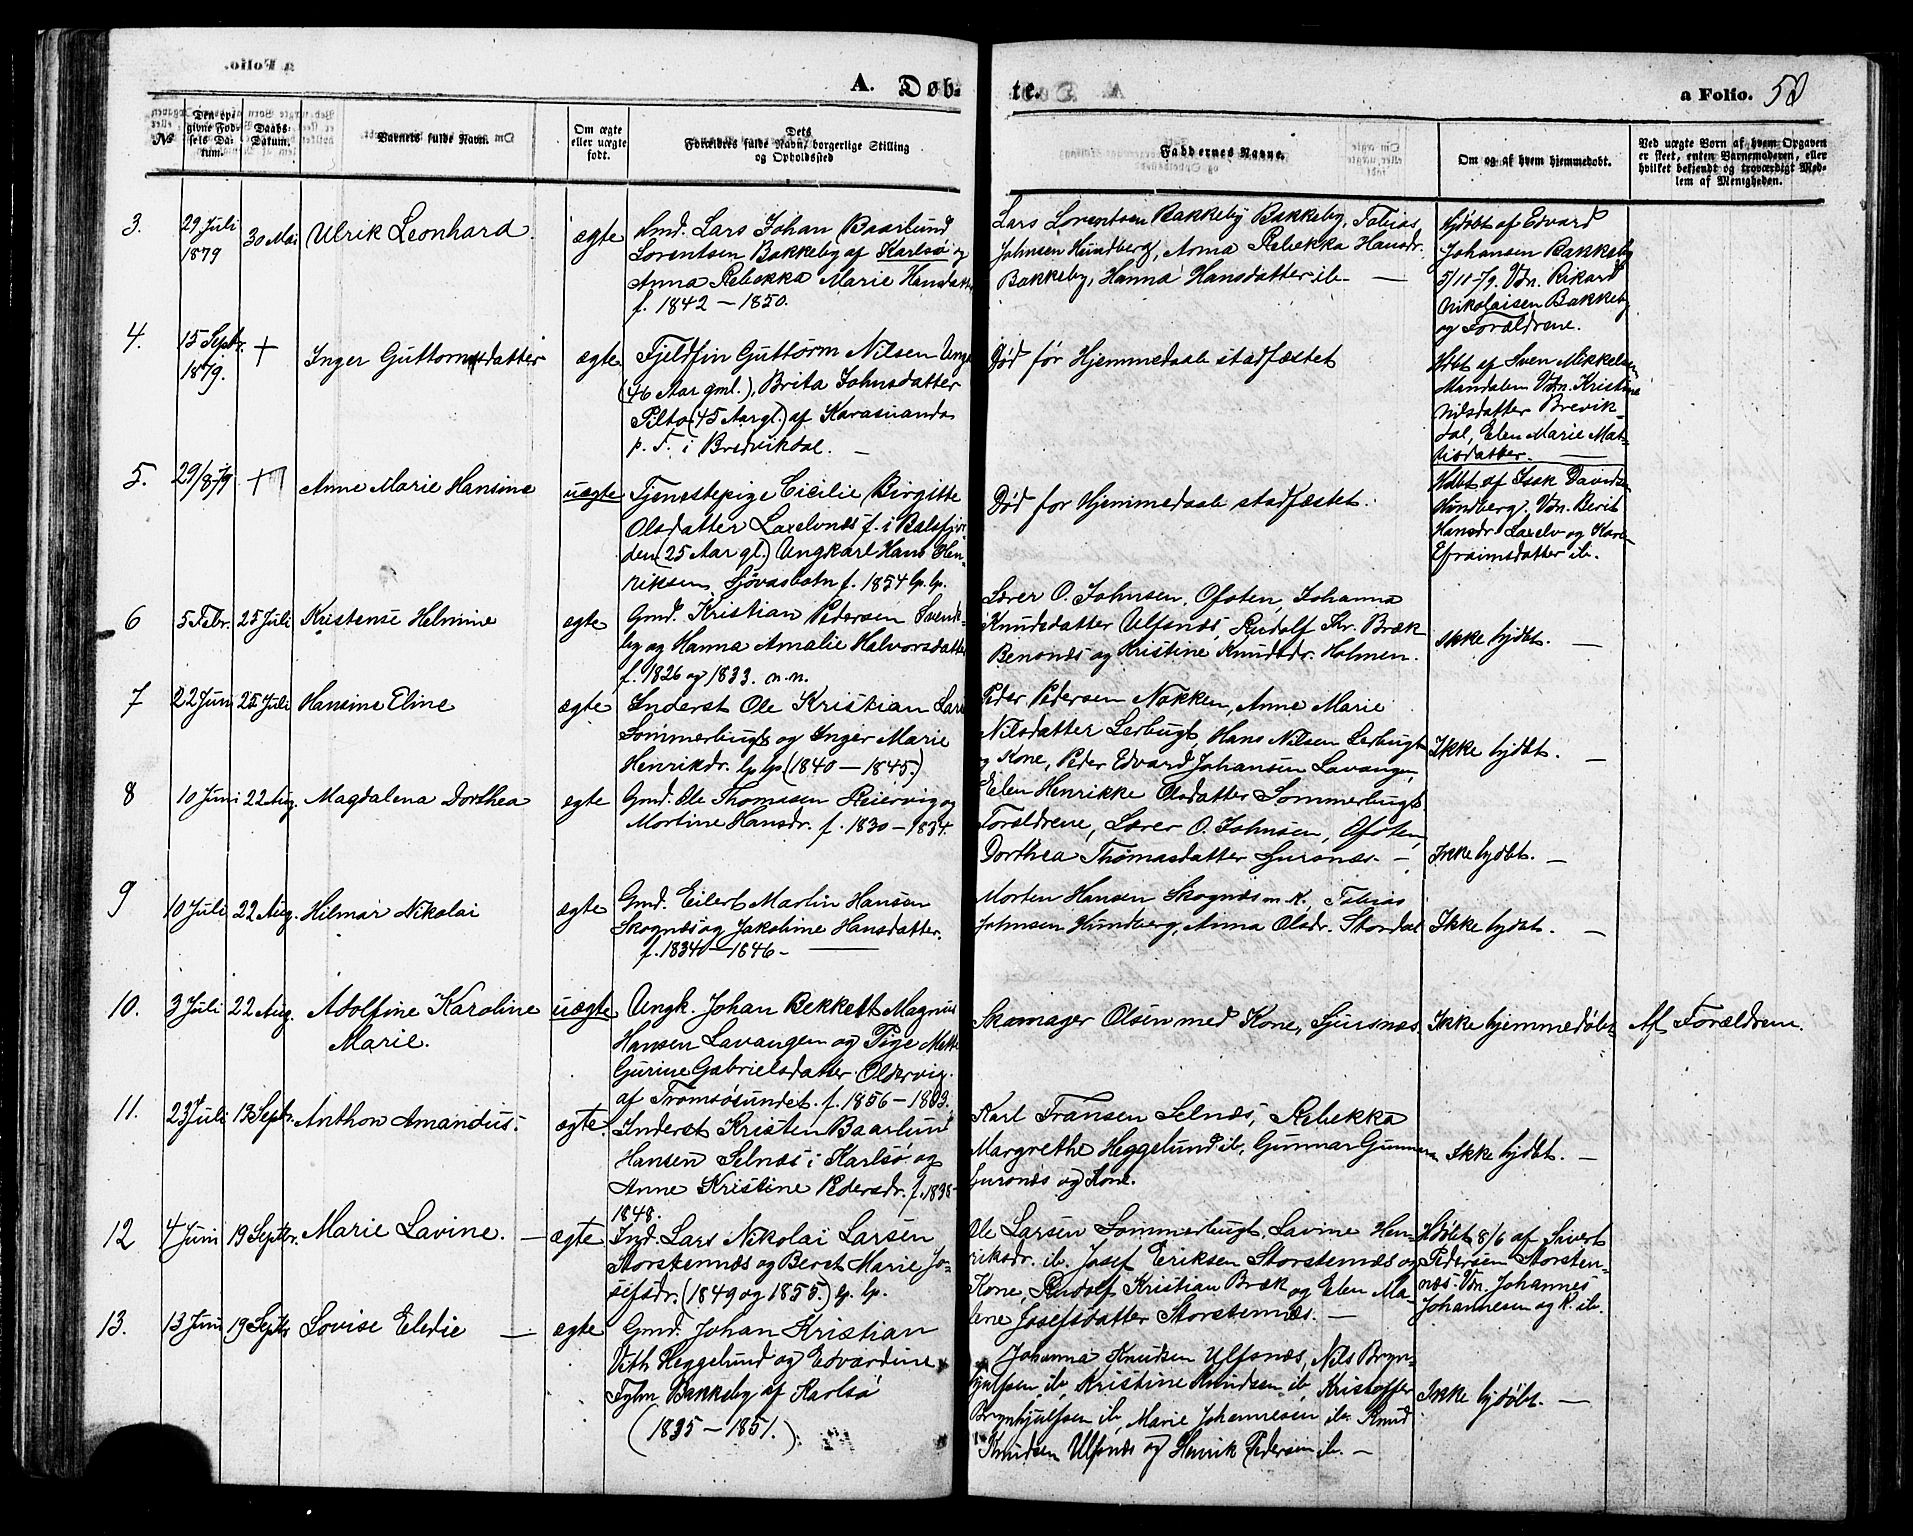 A. Døb-
te.
a Folio. 52
№
Den opgivne Fødsels Datum.
Daabs-Datum.
Barnets fulde Navn.
Om ægte eller uægte født.
Forældres fulde Navn, borgerlige Stilling og Opholdssted
Faddernes Navne.
Om og af hvem hjemmedøbt.
Ved uægte Børn af hvem Opgaven er skeet, enten Barnemoderen, eller hvilket bekjendt og troværdigt Medlem af Menigheden.
3.
29 Juli
1879
30 Mai
Ulrik Leonhard.
ægte
Gmd. Lars Johan Baarlund
Lorentsen Bakkeby af Karlsö og
Anna Rebekka Marie Hansdatter
f. 1842 – 1850.
Lars Lorentsen Bakkeby Bakkeby, Tobias
Johnsen Hundberg, Anna Rebekka Hansdr.
Bakkeby, Hanna Hansdatter ib. —
Hjdöbt af Edvard
Johansen Bakkeby
5/11-79. Vdn. Rikard
Nikolaisen Bakkeby
og Forældrene.
4.
15 Septbr.
1879.
+
Inger Guttormsdatter
ægte
Fjeldfin Guttorm Nilsen Unga
(46 Aar gml.), Brita Johnsdatter
Pilto (45 Aar gl.) af Karasuando
p. T. i Breivikdal. —
Död før Hjemmedaab stadfæstet
Hdbt af Sven Mikkelsen
Mandalen Vdn. Kristine
Nilsdatter Brevik-
dal, Elen Marie Mat-
tisdatter. —
5.
29/8-79
+
Anne Marie Hansine
uægte
Tjenestepige Cicilie Birgitte
Olsdatter Laxelvnæs f. i Balsfjor
den (25 Aar gl.) Ungkarl Hans Hen-
riksen, Sjøvasbotn f. 1854 lp. lp.
Död før Hjemmedaab stadfæstet.
Hdbt af Isak Davids.
Hundberg. Vdn. Berit
Hansdr. Laxelv og Karen
Efraimsdatter ib.
6
5 Febr.
25 Juli
Kristense Helmine
ægte
Gmd. Kristian Pedersen Svens-
by og Hanna Amalie Halvorsdatter
f. 1826 og 1833. n.n.
Lærer O. Johnsen, Ofoten, Johanna
Knudsdatter Ulfsnæs, Rudolf Kr. Bræk
Benonæs og Kristine Knudsdr. Holmen.
Ikke hjdöbt. —
7
22 Juni
25 Juli
Hansine Eline
ægte
Inderst Ole Kristian Lars
Sommerbugt og Inger Marie
Henriksdr. lp lp (1840 – 1845.)
Peder Pedersen Nakken, Anne Marie
Nilsdatter Lerbugt, Hans Nilsen Lerbugt
og Kone, Peder Edvard Johansen Lavangen,
Elen Henrikke Olsdatter Sommerbugt
Ikke hjdöbt. —
8
10 Juni
22 Aug.
Magdalena Dorthea
ægte
Gmd. Ole Thomasen Reiervig og
Mortine Hansdr. f. 1830 – 1834.
Forældrene, Lærer O. Johnsen, Ofoten,
Dorthea Thomasdatter Sjursnæs. —
Ikke hjdbt. —
9
10 Juli
22 Aug.
Hilmar Nikolai
ægte
Gmd. Eilert Martin Hansen
Skognæs og Jakobine Hansdatter.
f. 1840 – 1846 –
Morten Hansen Skognæs m. K., Tobias
Johnsen Hundberg, Anna Olsdr. Stordal
Ikke hjdøbt. —
10.
3 Juli
22 Aug.
Adolfine Karoline
Marie.
uægte
Ungk. Johan Bekkett Magnus
Hansen Lavangen og Pige Mette
Gurine Gabrielsdatter Oldervig
af Tromsösundet. f. 1856 – 1863.
Skomager Olsen med Kone, Sjursnæs
Ikke hjemmedøbt
Af Forældrene.
11.
23 Juli
13 Septbr.
Anthon Amandus.
ægte.
Inderst Kristen Baarlund
Hansen Selnæs i Karlsö og
Anne Kristine Pedersdr. f. 1838 –
1848.
Karl Fransen Selnæs, Rebekka
Margrethe Heggelund ib., Gunnar Gunnarsen
Sjursnæs og Kone.
Ikke hjdbt. —
12
4 Juni
19 Septbr.
Marie Lavine. —
ægte
Ind. Lars Nikolai Larsen
Storstennæs og Beret Marie Jo-
sefsdr. (1849 og 1855.) lp. lp.
Ole Larsen Sommerbugt, Lavine Hen-
riksdr. ib. Josef Eriksen Storstennæs og
Kone, Rudolf Kristian Bræk og Elen Ma-
lene Josefsdatter Storstennæs. —
Hdöbt 8/6 af Sivert
Pedersen Storsten-
næs. Vdn. Johannes
Johannesen og K. ib.
13.
13 Juni
19 Septbr
Lovise Eledie —
ægte
Gmd. Johan Kristian
Vith Heggelund og Edvardine
Fylm Bakkeby af Karlsö
(1835 – 1851.)
Johanna Knudsen Ulfsnæs, Nils Bryn-
hjulfsen ib., Kristine Knudsen ib. Kristoffer
Brynhjulfsen ib., Marie Johannesen ib. Knud
Knudsen Ulfsnæs og Henrik Pedersen ib. —
Ikke hjdöbt. —